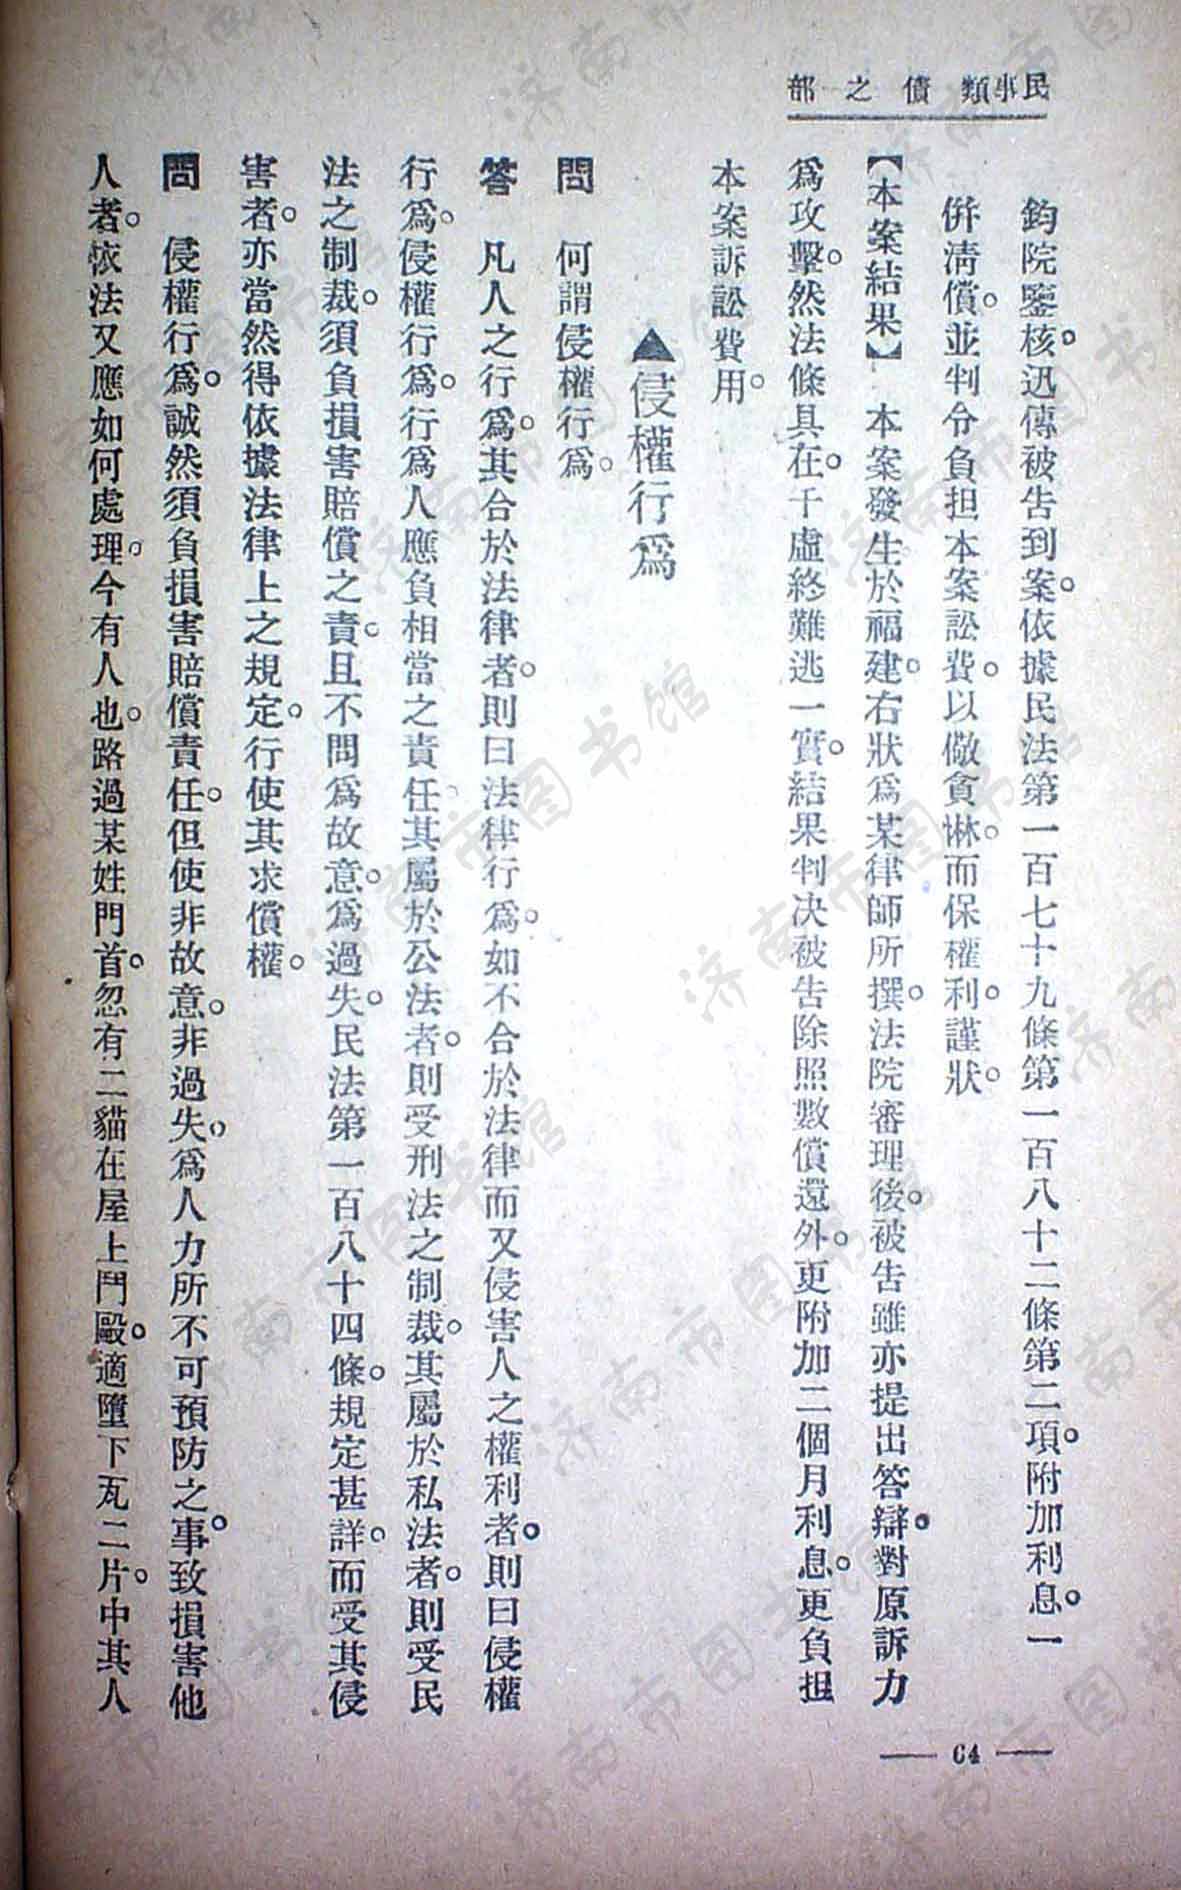 民事類債之部
鈞院鑒核。迅傳被告到案。依據民法第一百七十九條第一百八十二條第二項。附加利息。一
併淸償。並判令負担本案訟費。以儆貪惏。而保權利。謹狀。
【本案結果】 本案發生於福建。右狀爲某律師所撰。法院審理後。被吿雖亦提出答辯。對原訴力
爲攻擊。然法條具在。千虛終難逃一實。結果判決被告除照數償還外。更附加二個月利息。更負担
本案訴訟費用。
▲侵權行爲
問 何謂侵權行爲。
答 凡人之行爲。其合於法律者。則曰法律行爲。如不合於法律而又侵害人之權利者。則曰侵權
行爲。侵權行爲。行爲人應負相當之責任。其屬於公法者。則受刑法之制裁。其屬於私法者。則受民
法之制裁。須負損害賠償之責。且不問爲故意。爲過失。民法第一百八十四條。規定甚詳。而受其侵
害者。亦當然得依據法律上之規定。行使其求償權。
問 侵權行爲。誠然須負損害賠償責任。但使非故意。非過失。爲人力所不可預防之事。致損害他
人者。依法又應如何處理。今有人也。路過某姓門首。忽有二貓在屋上鬥毆。適墮下瓦二片。中其人
— 64 —
济南市图书馆